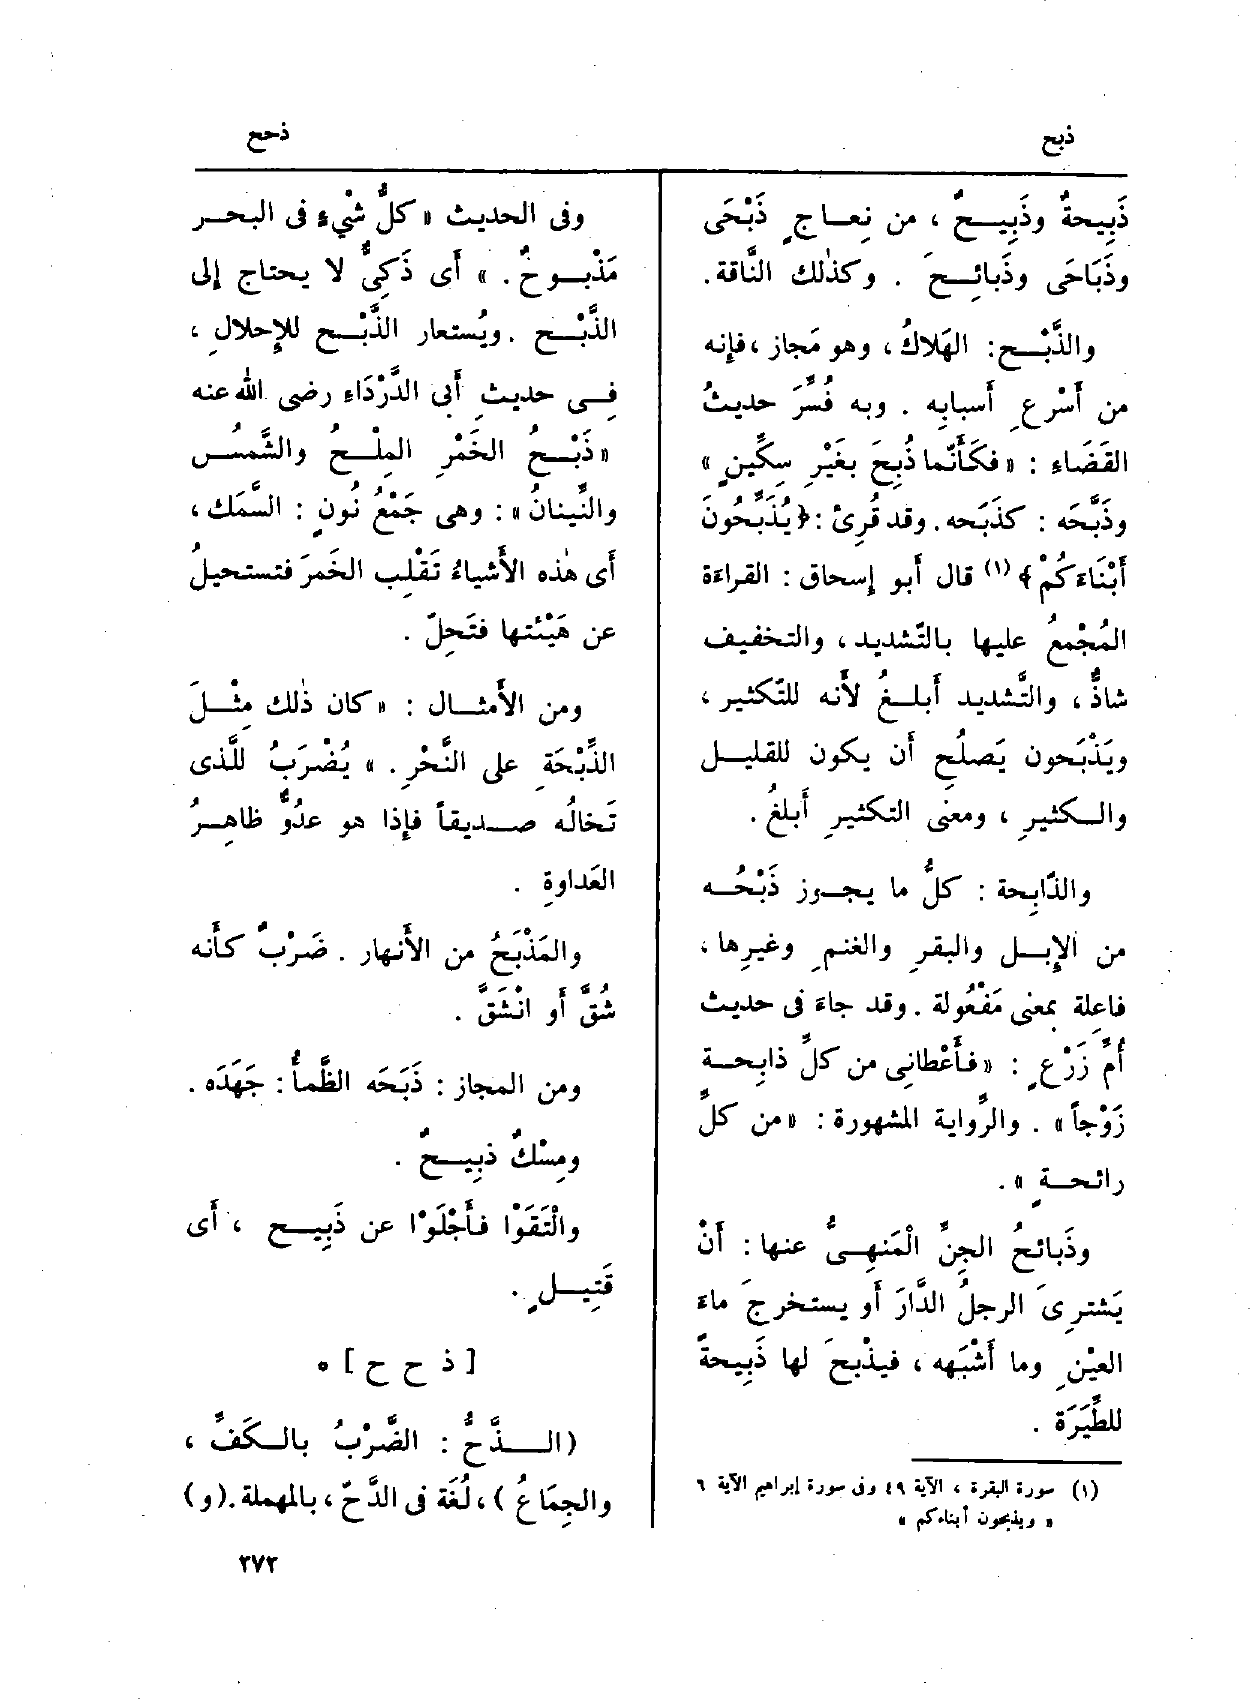 ذبح
ذحح
ذَبِيحةٌ وذَبِيـحٌ ، من نِعـاجٍ ذَبْحَى
وذَبَاحَى وذَبائِـحَ . وكذٰلك النَّاقة.
والذَّبْـح: الهَلاكُ، وهو مَجاز ،فإنه
من أَسْرعِ أَسبابِه . وبه فُسِّرَ حديثُ
القَضَاء : «فكَأَنَّما ذُبِحَ بغَيْرِ سِكِّينٍ»
وذَبَّحَه : كذبَحه. وقد قُرِئ :﴿يُذَبِّحُونَ
أَبْنَاءَكُمْ﴾ (١) قال أَبو إسحاق : القراءة
المُجْمعُ عليها بالتَّشديد ، والتخفيف
شاذٌّ ، والتَّشديد أَبلـغُ لأَنه للتّكثير ،
ويَذْبَحون يَصلُح أَن يكون للقليـل
والـكثيرِ ، ومعنَى التكثيرِ أَبلغُ .
والذّابِحة : كلُّ ما يجـوز ذَبْحُـه
من الإِبـل والبقرِ والغنمِ وغيرِها ،
فاعلة بمعنى مَفْعُولة . وقد جاءَ فى حديث
أُمِّ زَرْعٍ : «فـأَعْطانِى من كلِّ ذابِحـة
زَوْجاً» . والرِّواية المشهورة : «من كلِّ
رائحـةٍ ».
وذَبائحُ الجِنِّ الْمَنهِـىُّ عنها : أَنْ
يَشترِىَ الرجلُ الدَّارَ أَو يستخرجَ ماءَ
العيْنِ وما أَشْبَهه ، فيذْبحَ لها ذَبِيحةً
للطِّيَرَة .
(١) سورة البقرة ، الآية ٤٩ وفى سورة إبراهيم الآية ٦
« ويذبحون أبناءكم »
وفى الحديث «كلُّ شىْءٍ فى البحـر
مَذْبـوحٌ . » أَى ذَكِىٌّ لا يحتاج إلى
الذَّبْـح .ويُستعار الذَّبْـح للإِحلالِ ،
فِـى حديثِ أَبى الدَّرْدَاءِ رضى الله عنه
«ذَبْـحُ الخَمْرِ المِلْـحُ والشَّمسُ
والنِّينانُ» : وهى جَمْعُ نُونٍ : السَّمَك ،
أَى هٰذه الأَشياءُ تَقْلِب الخَمرَ فتستحيلُ
عن هَيْئتها فتَحِلّ .
ومن الأَمثـال : «كان ذٰلك مِثْـلَ
الذِّبْحَةِ على النَّحْرِ. » يُضْرَبُ للَّذى
تَخالُه صـديقاً فإذا هو عدُوٌّ ظاهِـرُ
العَداوةِ .
والمَذْبَحُ من الأَنهار . ضَرْبٌ كأَنه
شُقَّ أَو انْشَقَّ .
ومن المجاز : ذَبَحَه الظَّمأُ : جَهَدَه .
ومِسْكٌ ذبِيـحٌ .
والْتَقَوْا فـأَجْلَوْا عن ذَبِيـح ، أَى
قَتِيـلٍ .
[ ذ ح ح ] *
(الــذَّحُّ : الضَّرْبُ بالـكَفِّ ،
والجِمَاعُ ) ، لُغَة فى الدَّحّ ، بالمهملة .(و)
٣٧٢